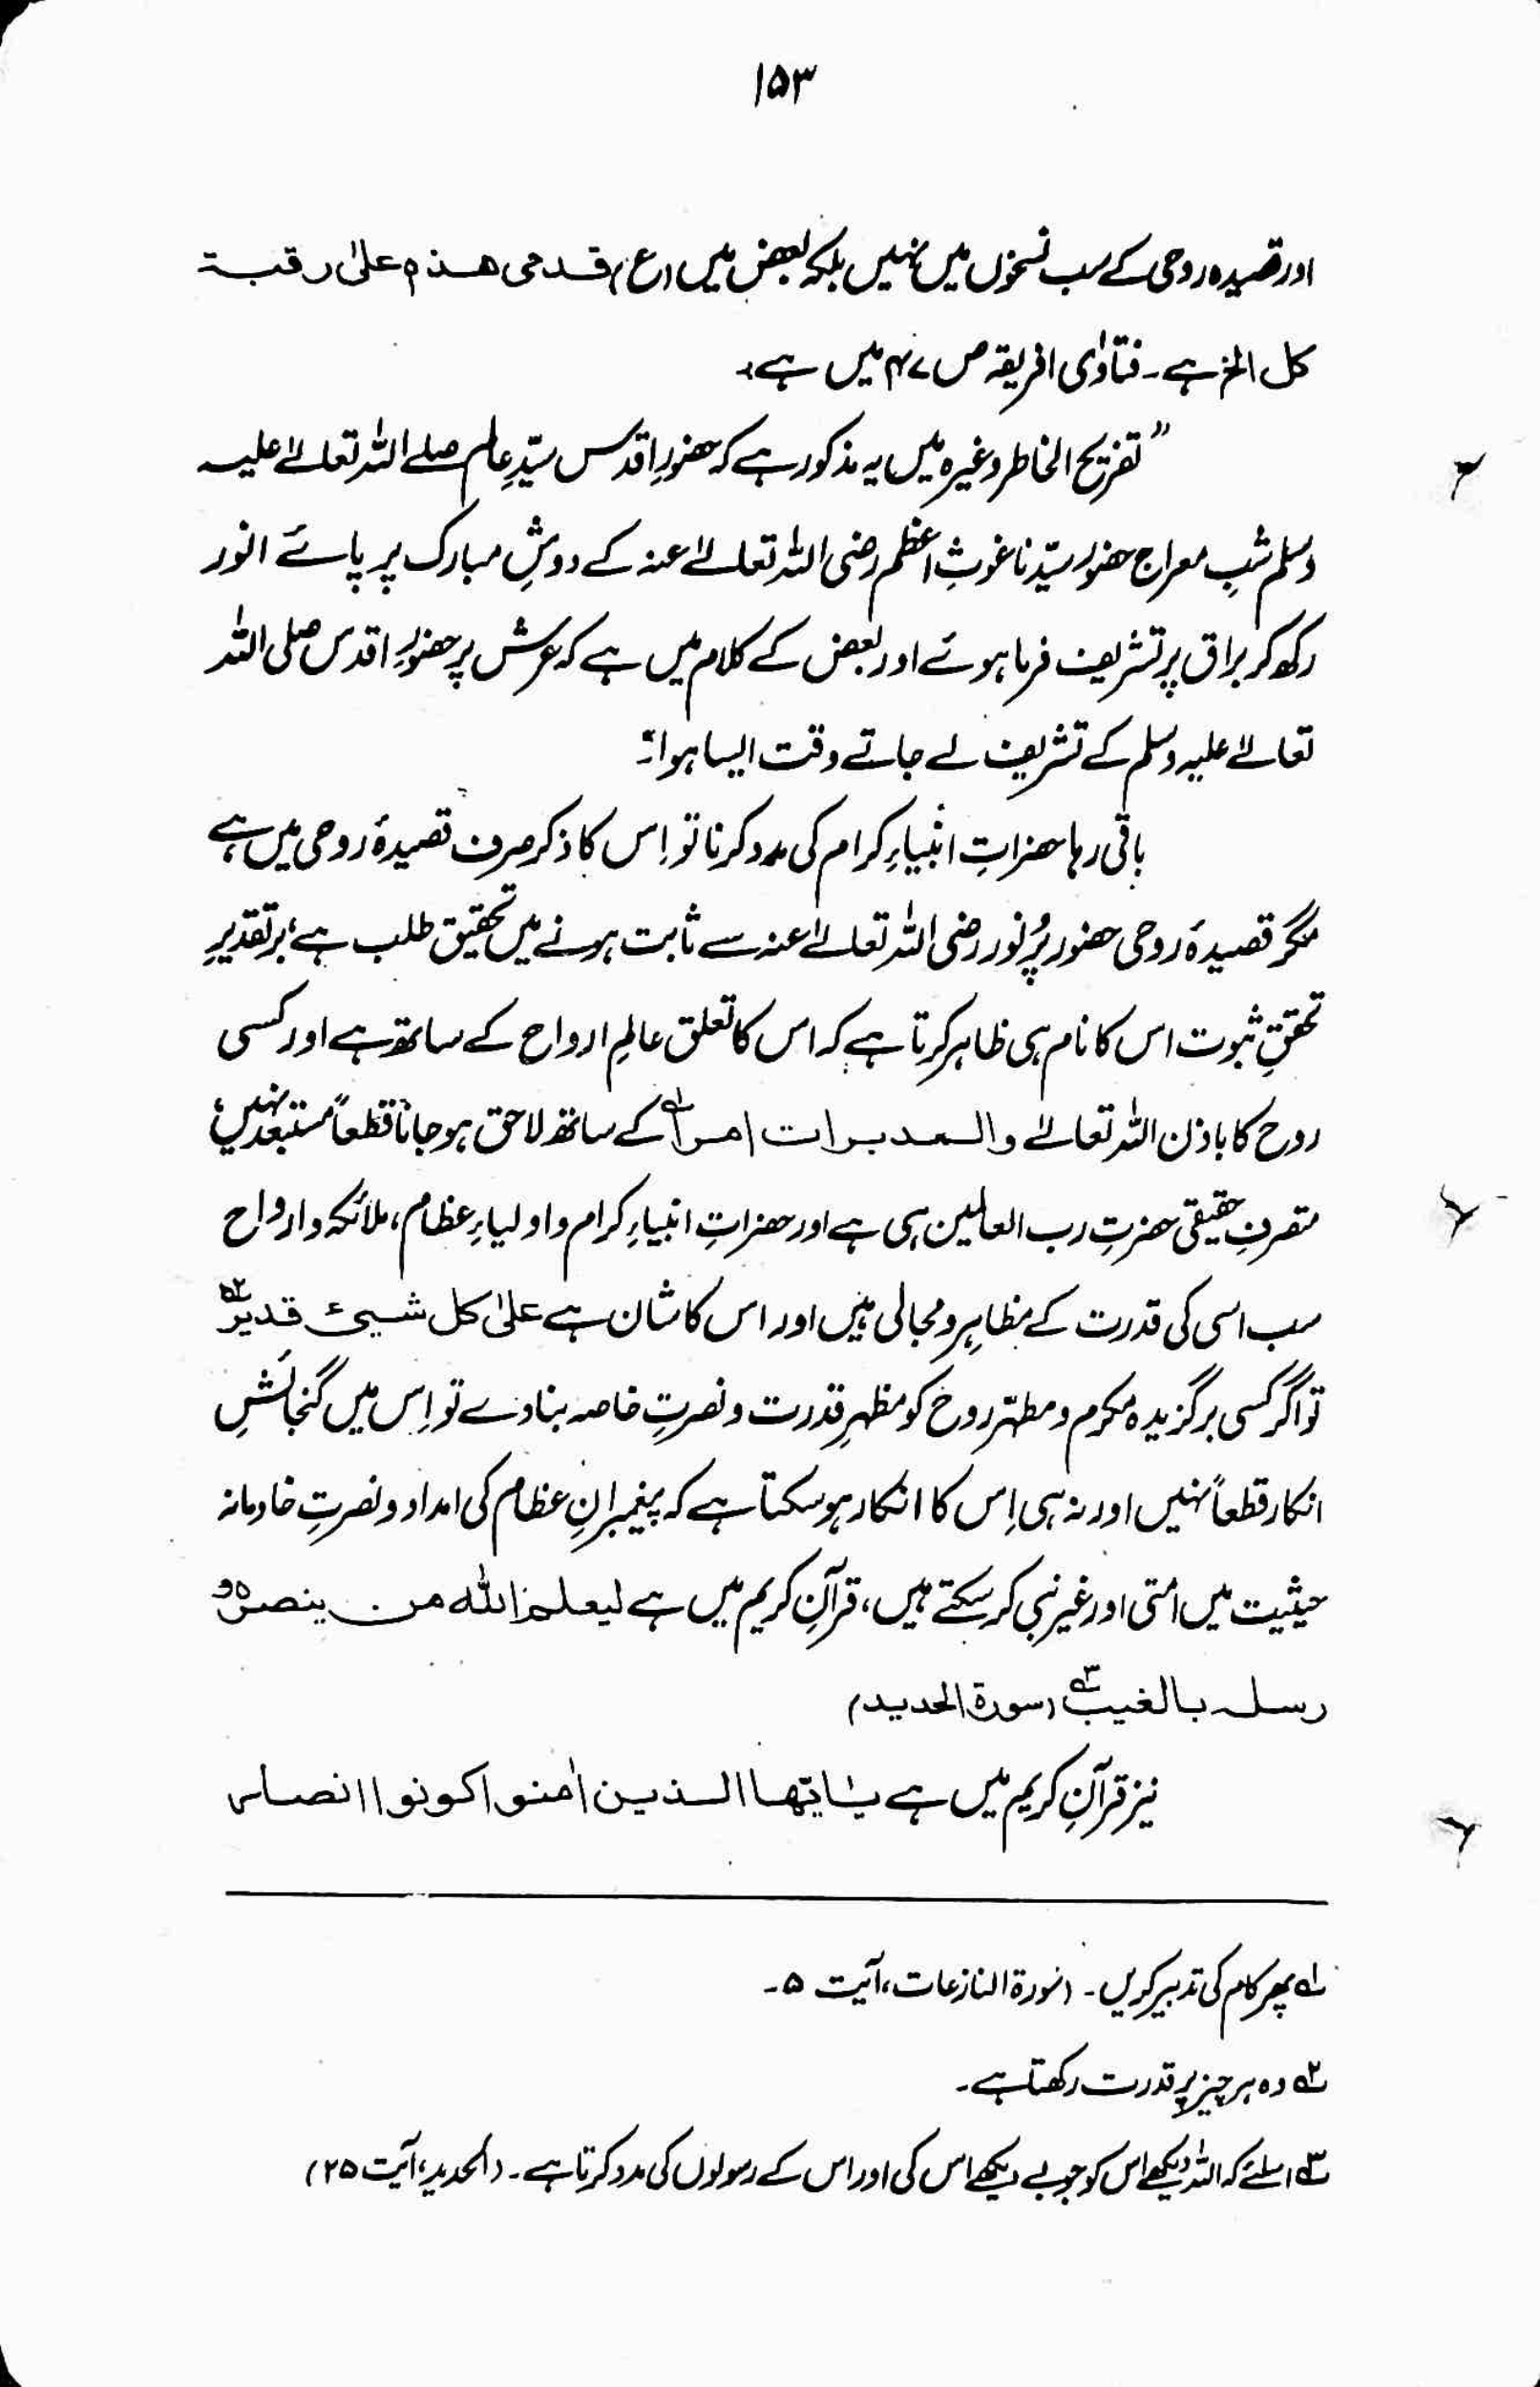 ۱۵۳
اور قصیدہ روحی کے سب نسخوں میں نہیں بلکہ بعض میں (ع) قدمی ھذہ علیٰ رقبۃ
کل الخ ہے۔ فتاوٰی افریقہ ص ۴۷ میں ہے:
"تفریح الخاطر وغیرہ میں یہ مذکور ہے کہ حضورِ اقدس سیّدِ عالم صلے اللہ تعالےٰ علیہ
وسلم شبِ معراج حضور سیّدنا غوثِ اعظم رضی اللہ تعالےٰ عنہ کے دوشِ مبارک پر پائے انور
رکھ کر براق پر تشریف فرما ہوئے اور بعض کے کلام میں ہے کہ عرش پر حضورِ اقدس صلی اللہ
تعالےٰ علیہ وسلم کے تشریف لے جاتے وقت ایسا ہوا"۔
باقی رہا حضراتِ انبیاءِ کرام کی مدد کرنا تو اِس کا ذکر صرف قصیدۂ روحی میں ہے،
مگر قصیدۂ روحی حضور پُرنور رضی اللہ تعالےٰ عنہ سے ثابت ہونے میں تحقیق طلب ہے؛ برتقدیرِ
تحققِ ثبوت اس کا نام ہی ظاہر کرتا ہے کہ اس کا تعلق عالمِ ارواح کے ساتھ ہے اور کسی
روح کا باذن اللہ تعالےٰ والمدبرات امراً۱ کے ساتھ لاحق ہو جانا قطعاً مستبعد نہیں؛
متصرفِ حقیقی حضرتِ رب العالمین ہی ہے اور حضراتِ انبیاءِ کرام و اولیاءِ عظام، ملائکہ و ارواح
سب اسی کی قدرت کے مظاہر و مجالی ہیں اور اس کا شان ہے علیٰ کل شیئ قدیر۲
تو اگر کسی برگزیدہ مکرم و مطہّر روح کو مظہرِ قدرت و نصرتِ خاصہ بنا دے تو اِس میں گنجائشِ
انکار قطعاً نہیں اور نہ ہی اِس کا انکار ہو سکتا ہے کہ پیغمبرانِ عظام کی امداد و نصرتِ خادمانہ
حیثیت میں اُمتی اور غیر نبی کر سکتے ہیں، قرآنِ کریم میں ہے لیعلم اللہ من ینصرہ و
رسلہ بالغیب۳ (سورۃ الحدید)
نیز قرآنِ کریم میں ہے یٰایّھا الذین اٰمنوا کونوا انصار
۱ پھر کام کی تدبیر کریں۔ (سورۃ النازعات، آیت ۵۔
۲ وہ ہر چیز پر قدرت رکھتا ہے۔
۳ اسلئے کہ اللہ دیکھے اس کو جو بے دیکھے اس کی اور اس کے رسولوں کی مدد کرتا ہے۔ (الحدید، آیت ۲۵)